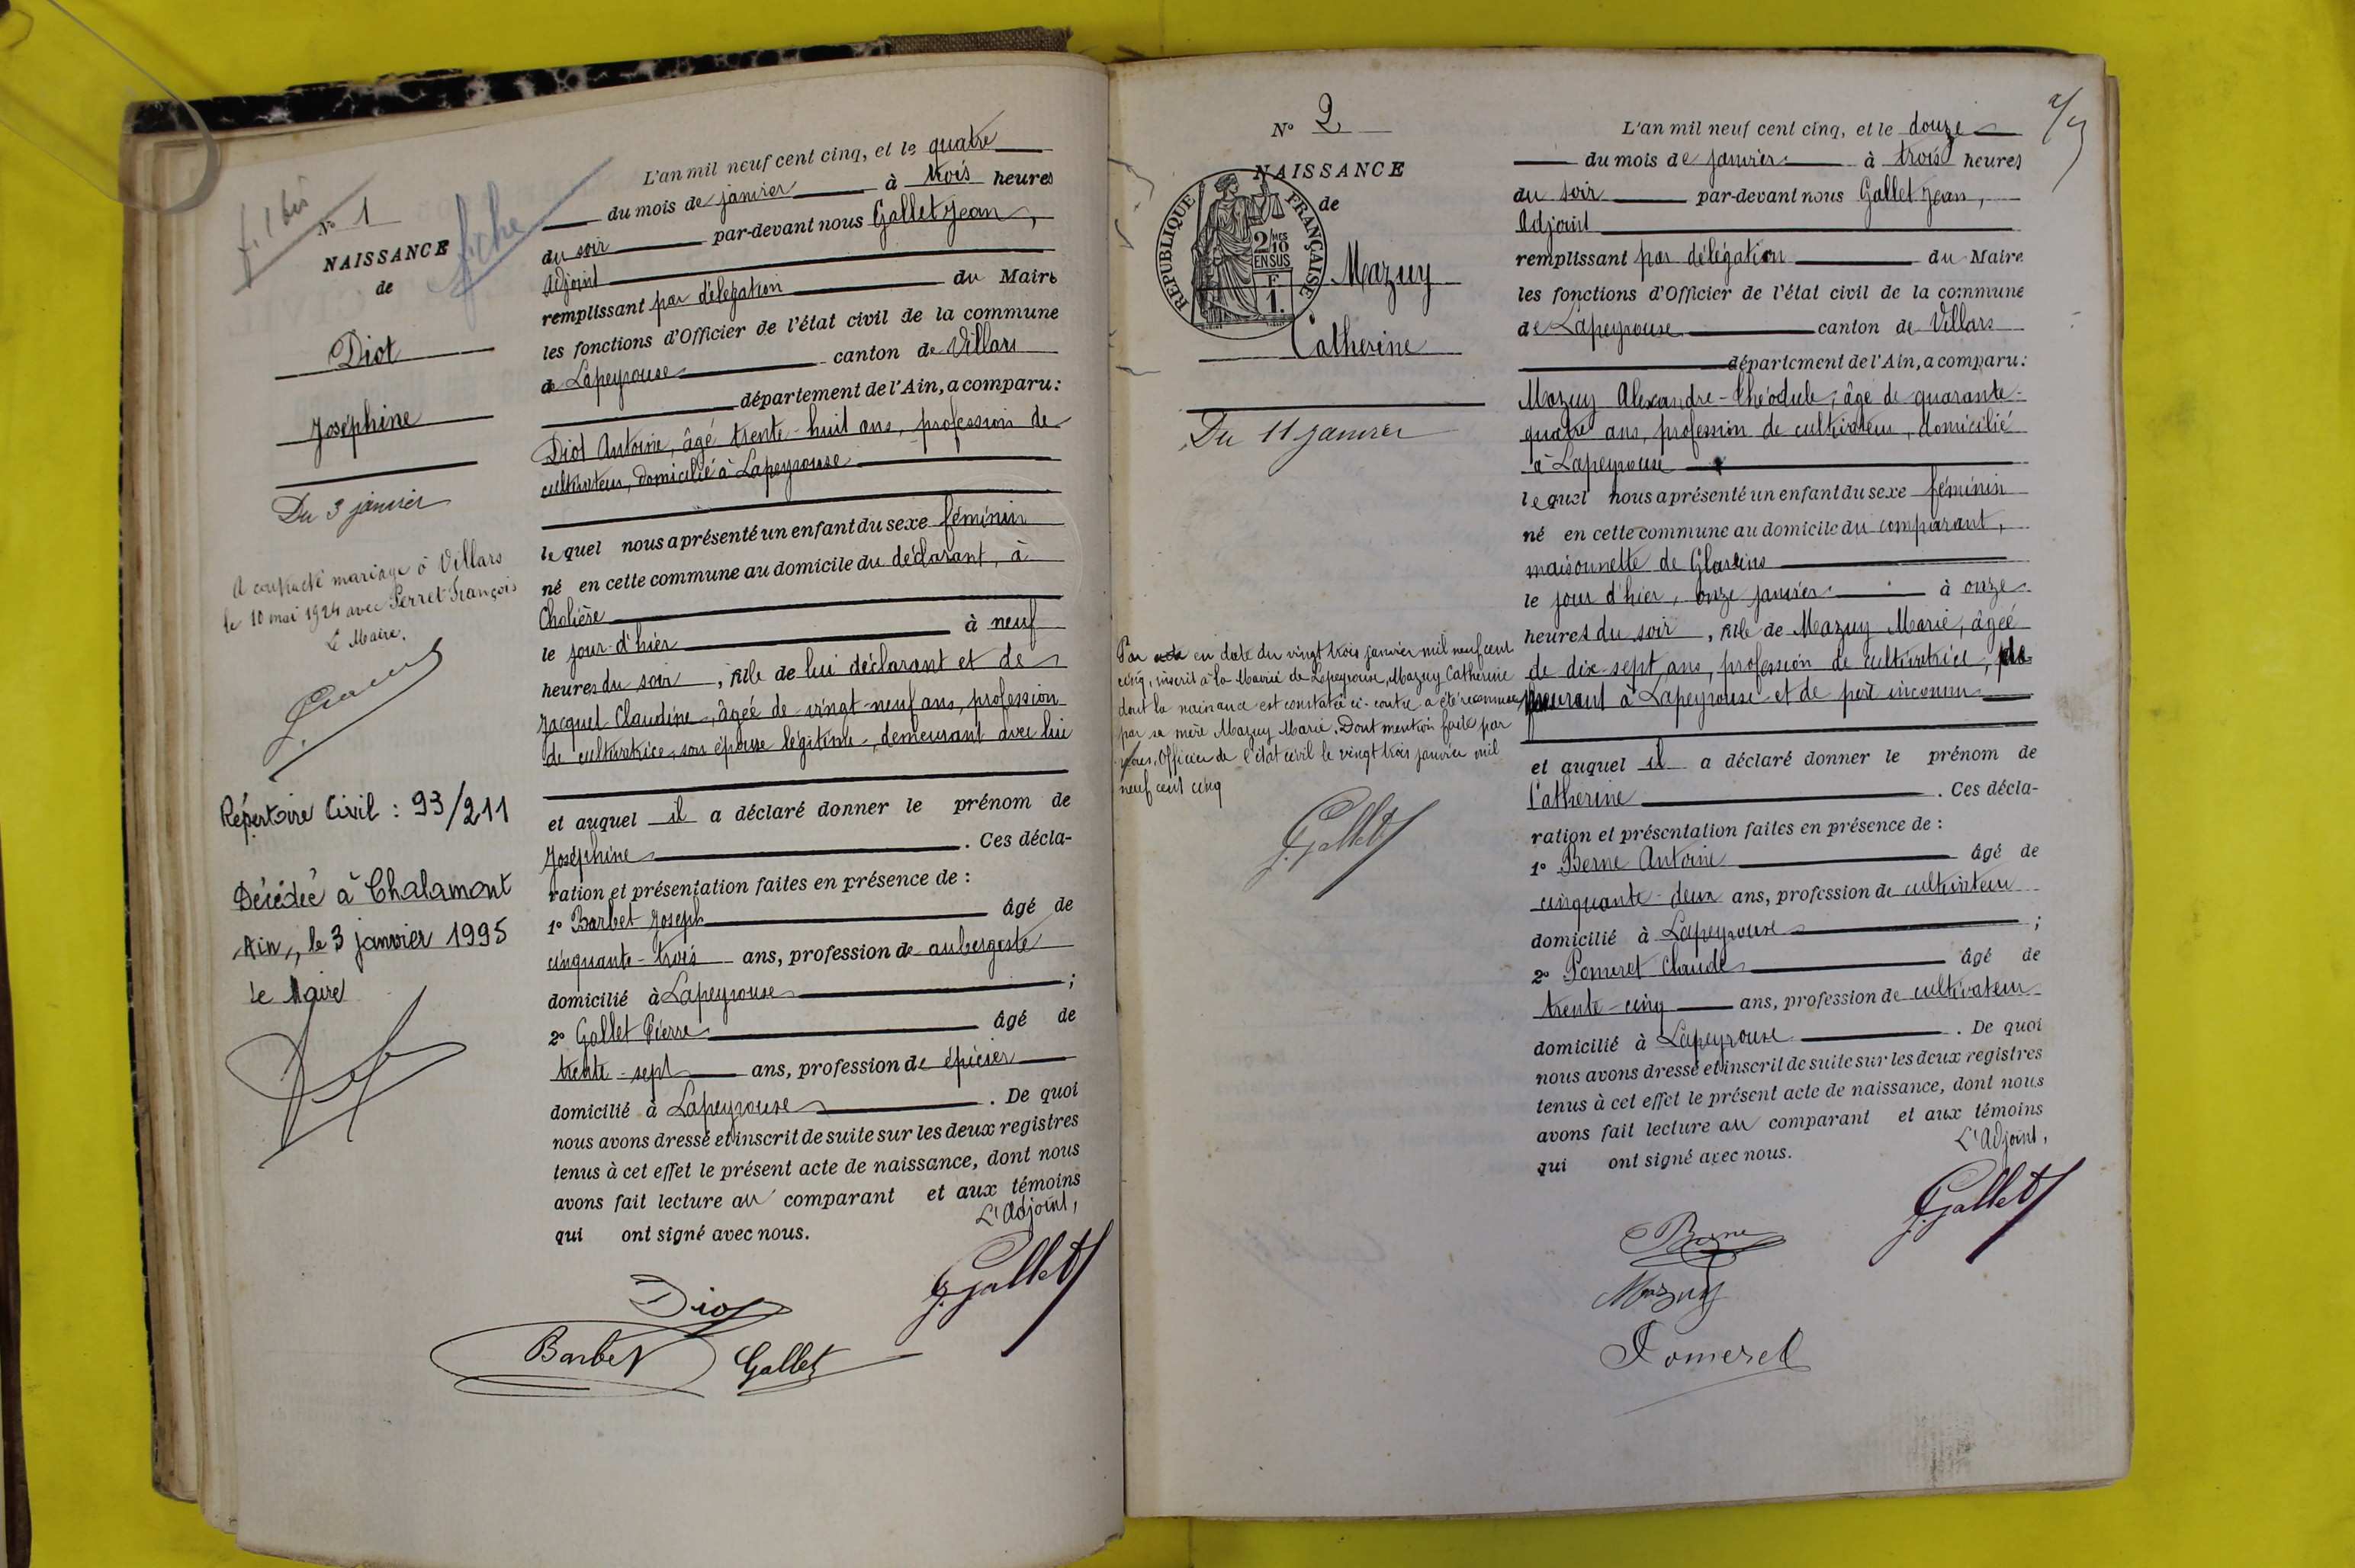 f. 1 bis
fiche
N° 1
NAISSANCE
de
Diot
Joséphine
Du 3 janvier
A contracté mariage à Villars
le 10 mai 1924 avec Perret François
Le Maire.
Répertoire Civil : 93/211
Décédée à Chalamont
Ain, le 3 janvier 1995
le Maire
L'an mil neuf cent cinq, et le quatre
du mois de janvier à trois heures
du soir par-devant nous Gallet Jean,
Adjoint
remplissant par délégation du Maire
les fonctions d'Officier de l'état civil de la commune
de Lapeyrouse canton de Villars
département de l'Ain, a comparu :
Diot Antoine, âgé trente-huit ans, profession de
cultivateur, domicilié à Lapeyrouse
lequel nous a présenté un enfant du sexe féminin
né en cette commune au domicile du déclarant, à
Cholière
le jour d'hier à neuf
heures du soir, fille de lui déclarant et de
Jacquet Claudine, âgée de vingt-neuf ans, profession
de cultivatrice, son épouse légitime, demeurant avec lui
et auquel il a déclaré donner le prénom de
Joséphine . Ces décla-
ration et présentation faites en présence de :
1° Barbet Joseph âgé de
cinquante-trois ans, profession de aubergiste
domicilié à Lapeyrouse ;
2° Gallet Pierre âgé de
trente-sept ans, profession de épicier
domicilié à Lapeyrouse . De quoi
nous avons dressé et inscrit de suite sur les deux registres
tenus à cet effet le présent acte de naissance, dont nous
avons fait lecture au comparant et aux témoins
qui ont signé avec nous.
L'Adjoint,
Diot
J. Gallet
Barbet Gallet
2
N° 2
NAISSANCE
de
RÉPUBLIQUE FRANÇAISE
2/10 MES
EN SUS
F
1.
Mazuy
Catherine
Du 11 janvier
Par acte en date du vingt trois janvier mil neuf cent
cinq, inscrit à la Mairie de Lapeyrouse, Mazuy Catherine
dont la naissance est constatée ci-contre a été reconnue
par sa mère Mazuy Marie. Dont mention faite par
nous, Officier de l'état civil le vingt trois janvier mil
neuf cent cinq
J. Gallet
L'an mil neuf cent cinq, et le douze
du mois de janvier à trois heures
du soir par-devant nous Gallet Jean,
Adjoint
remplissant par délégation du Maire
les fonctions d'Officier de l'état civil de la commune
de Lapeyrouse canton de Villars
département de l'Ain, a comparu :
Mazuy Alexandre-Théodule, âgé de quarante-
quatre ans, profession de cultivateur, domicilié
à Lapeyrouse
lequel nous a présenté un enfant du sexe féminin
né en cette commune au domicile du comparant,
maisonnette de Glareins
le jour d'hier, onze janvier à onze
heures du soir, fille de Mazuy Marie, âgée
de dix-sept ans, profession de cultivatrice, de
meurant à Lapeyrouse et de père inconnu
et auquel il a déclaré donner le prénom de
Catherine . Ces décla-
ration et présentation faites en présence de :
1° Berne Antoine âgé de
cinquante-deux ans, profession de cultivateur
domicilié à Lapeyrouse ;
2° Pomeret Claude âgé de
trente-cinq ans, profession de cultivateur
domicilié à Lapeyrouse . De quoi
nous avons dressé et inscrit de suite sur les deux registres
tenus à cet effet le présent acte de naissance, dont nous
avons fait lecture au comparant et aux témoins
qui ont signé avec nous.
L'Adjoint,
J. Gallet
Berne
Mazuy
Pomeret